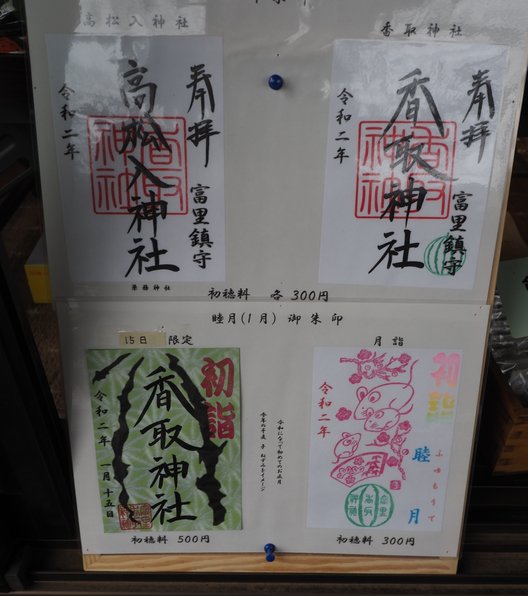 高松入神社
香取神社
奉拝
富里鎮守
高松入神社
令和二年
兼務神社
奉拝
富里鎮守
香取神社
令和二年
初穂料 各 300円
睦月(1月) 御朱印
15日 限定
月詣
初詣
香取神社
令和二年 一月十五日
令和になって初めてのお正月
初詣
睦月
令和二年
初穂料 500円
初穂料 300円